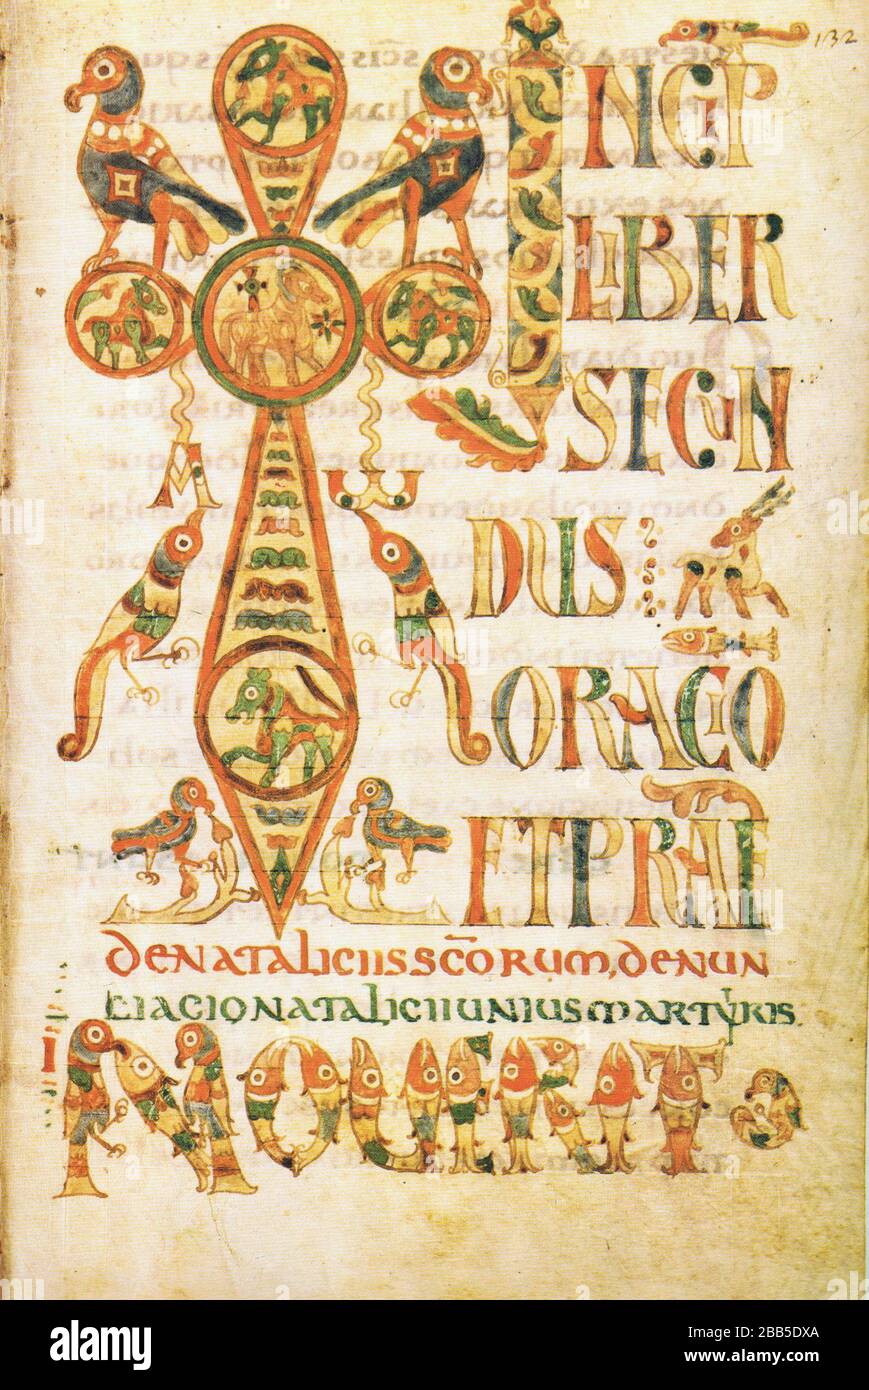 132
INCIP
LIBER
SECUN
DUS
ORACIO
ET PRAE
A ω
DENATALICIISSCORUM, DENUN
TIACIONATALICIIUNIUSMARTYRIS.
I
NOUERIT
alamy
Image ID: 2BB5DXA
www.alamy.com